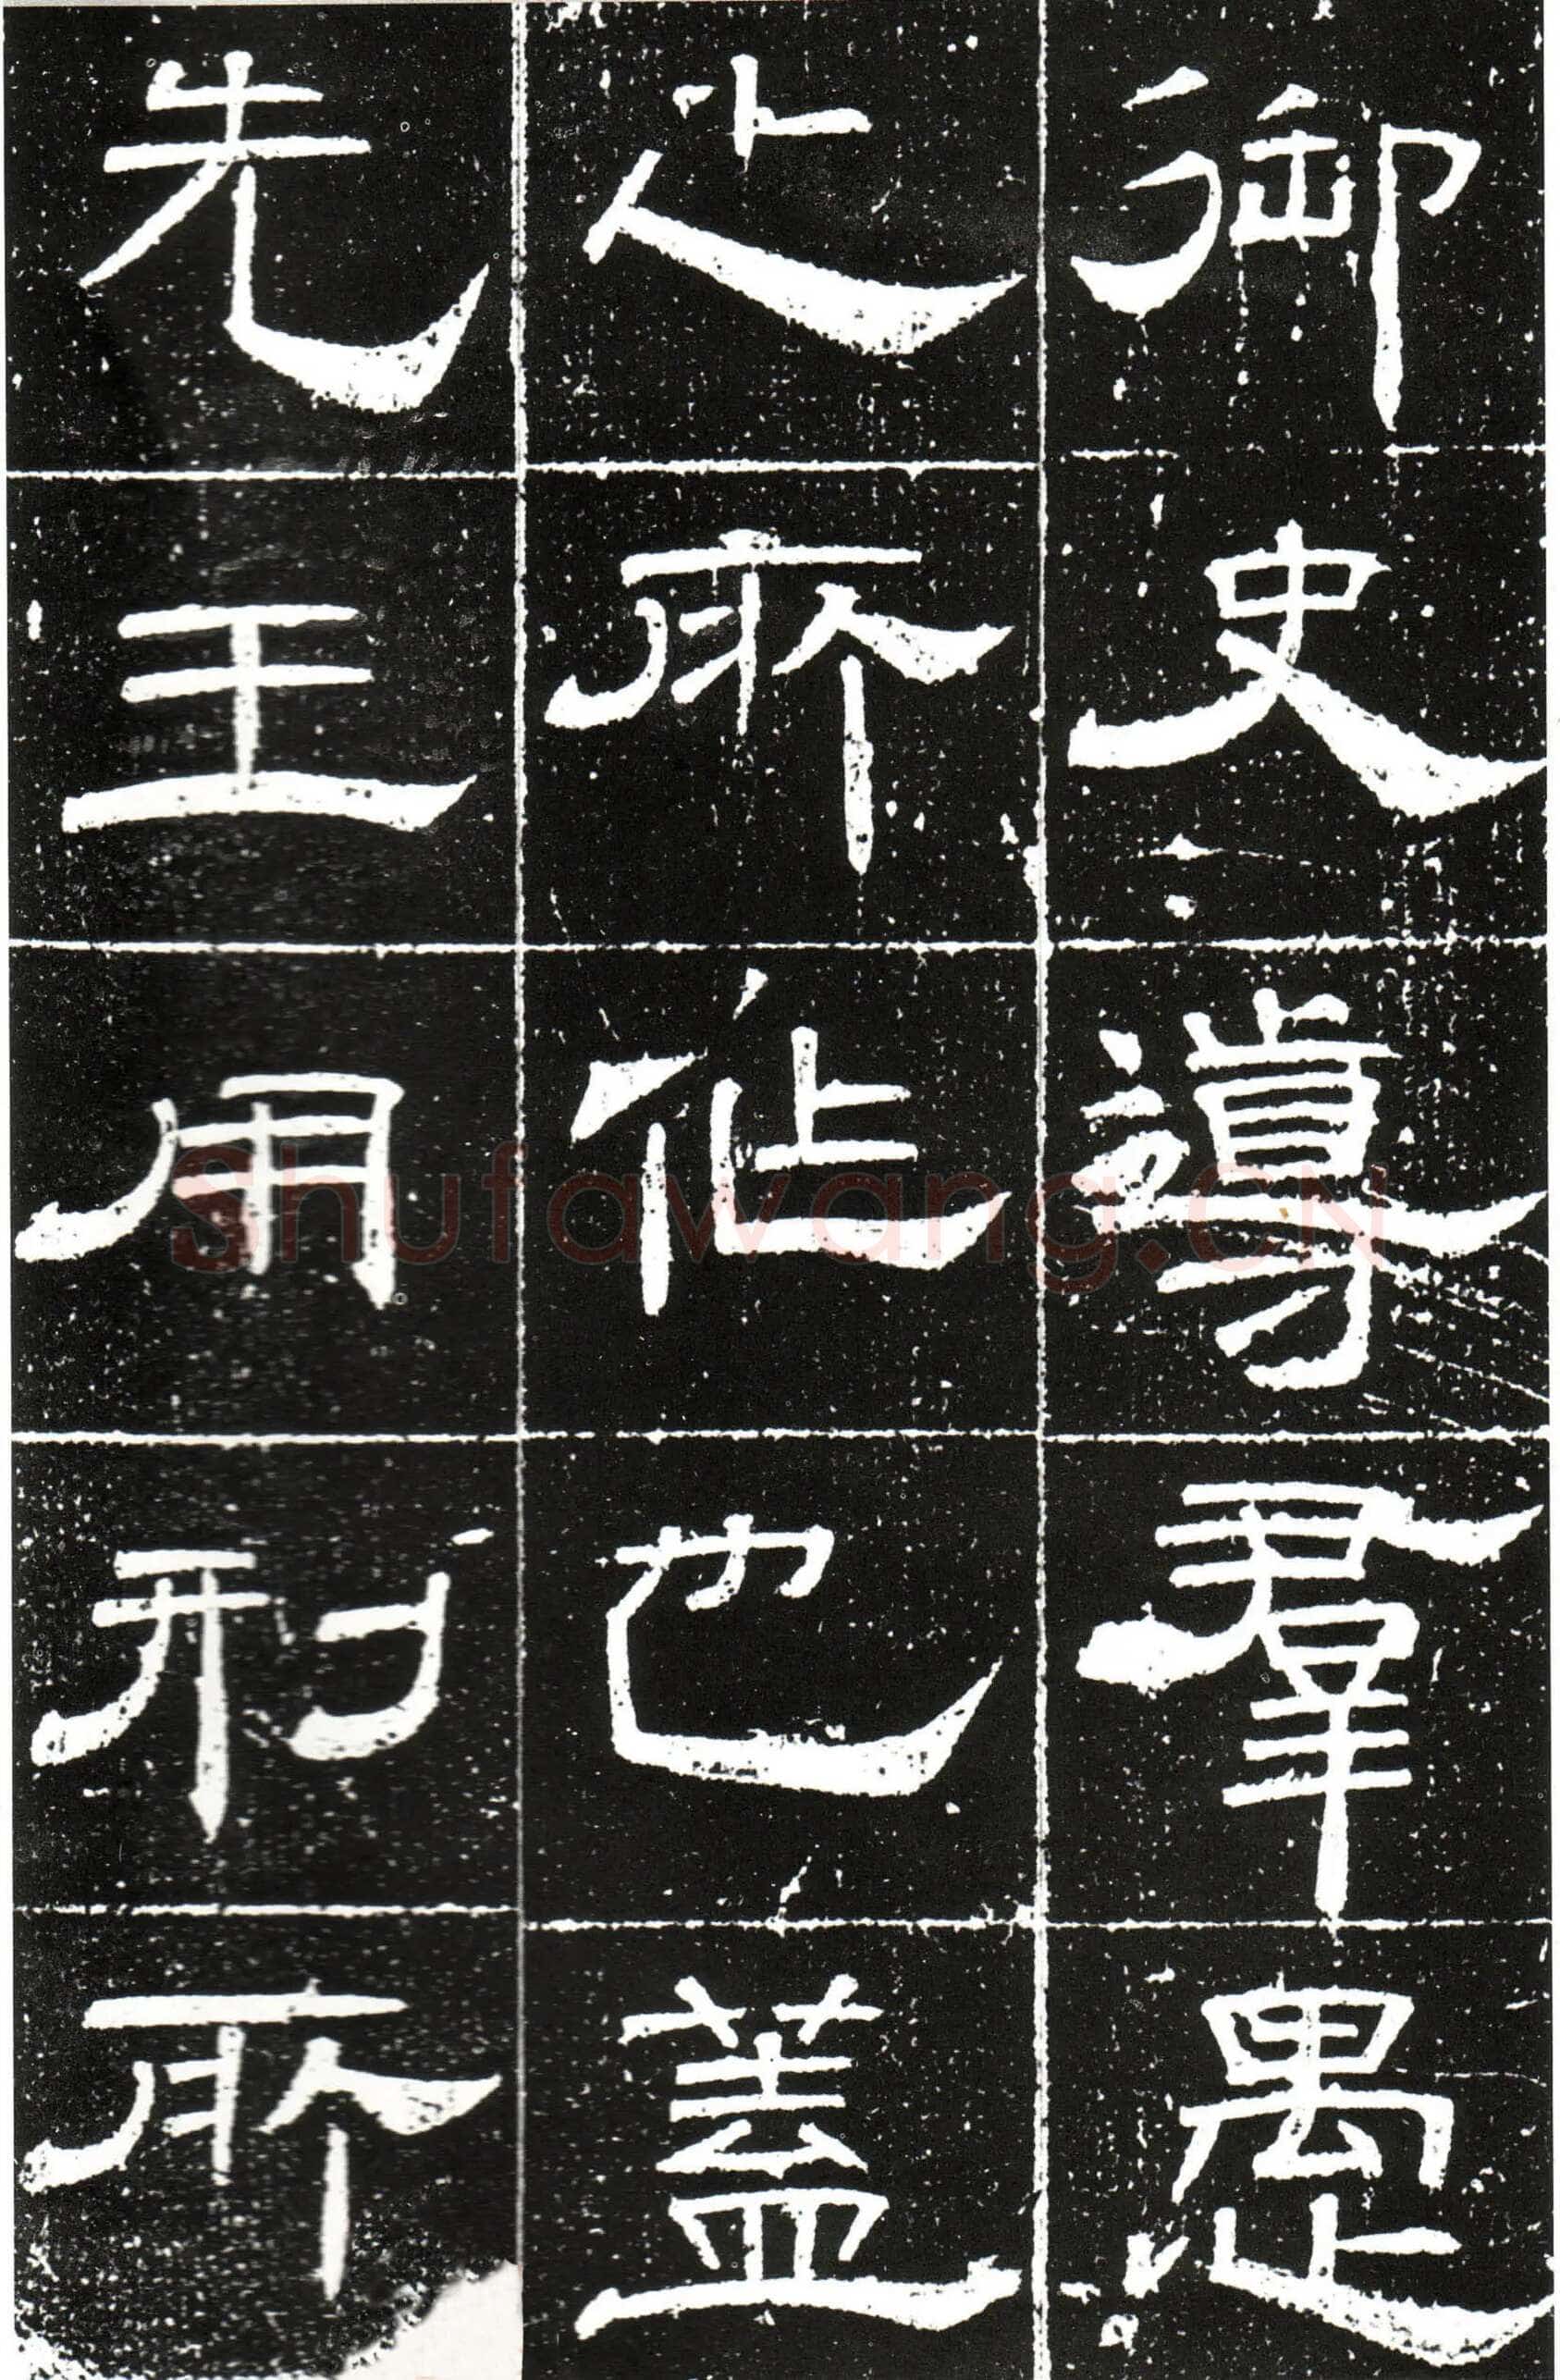 御史導羣愚
之所作也蓋
先王用刑所
Shufawang.CN